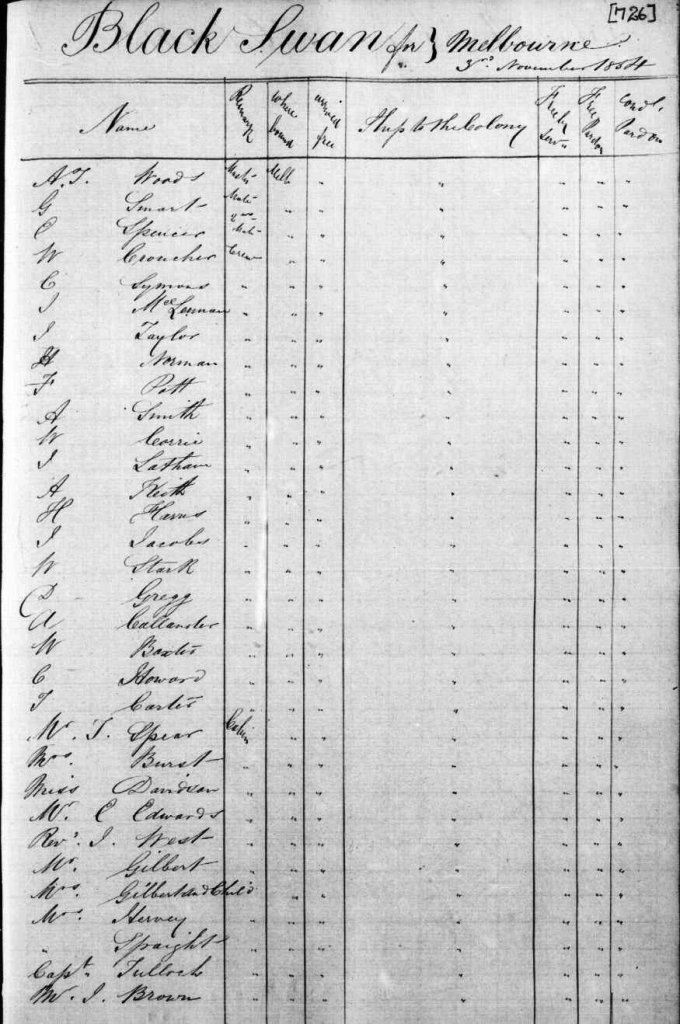 [726]
Black Swan for } Melbourne
3rd November 1854
Name Remark where bound arrived free Ship to the Colony Free by Serv. Free Pardon Condl. Pardon
A. T. Woods Melb " " " " "
G Smart Mate " " " " " "
C Spencer 2nd Mate " " " " " "
W Croucher Crew " " " " " "
C Symons " " " " " " "
J McLennan " " " " " " "
J Taylor " " " " " " "
H Norman " " " " " " "
F Pott " " " " " " "
A Smith " " " " " " "
W Corrie " " " " " " "
J Latham " " " " " " "
A Keith " " " " " " "
H " " " " " " "
J Jacobs " " " " " " "
W Stark " " " " " " "
D Gregg " " " " " " "
A Callander " " " " " " "
W Baxter " " " " " " "
C Howard " " " " " " "
T Carter " " " " " " "
Mr. T. Spear Cabin " " " " " "
Mrs. Burst " " " " " " "
Miss Davidson " " " " " " "
Mr. C Edwards " " " " " " "
Revd. J. West " " " " " " "
Mr. Gilbert " " " " " " "
Mrs. Gilbert and Child " " " " " " "
Mrs. Hervey " " " " " " "
" Spraight " " " " " " "
Capt. Tulloch " " " " " " "
Mr. J. Brown " " " " " " "